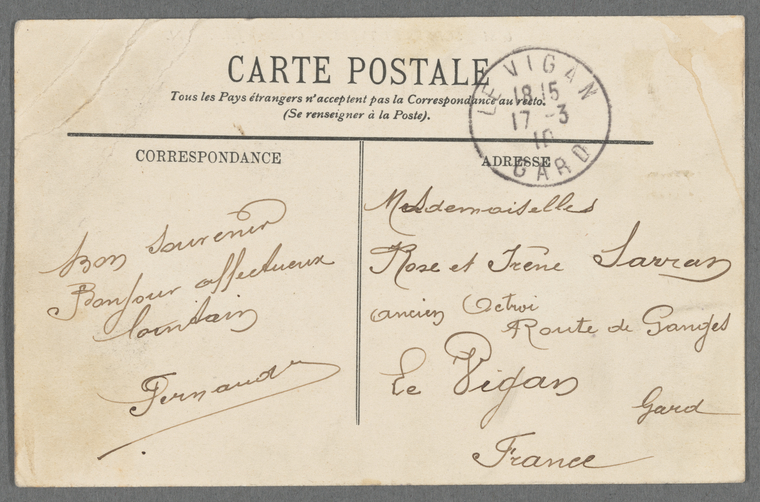 CARTE POSTALE
Tous les Pays étrangers n'acceptent pas la Correspondance au recto.
(Se renseigner à la Poste).
LE VIGAN
18 15
17 -3
10
GARD
CORRESPONDANCE
Bon souvenir
Bonjour affectueux
lointain
Fernande
ADRESSE
Mesdemoiselles
Rose et Irène Sarran
ancien Octroi
Route de Ganges
Le Vigan
Gard
France